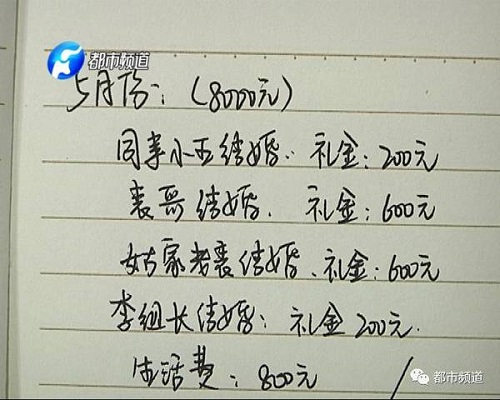 都市频道
5月份：(8000元)
同事小王结婚. 礼金：200元
表哥结婚. 礼金：600元
姑家老表结婚. 礼金：600元
李组长结婚：礼金200元.
生活费：800元
都市频道